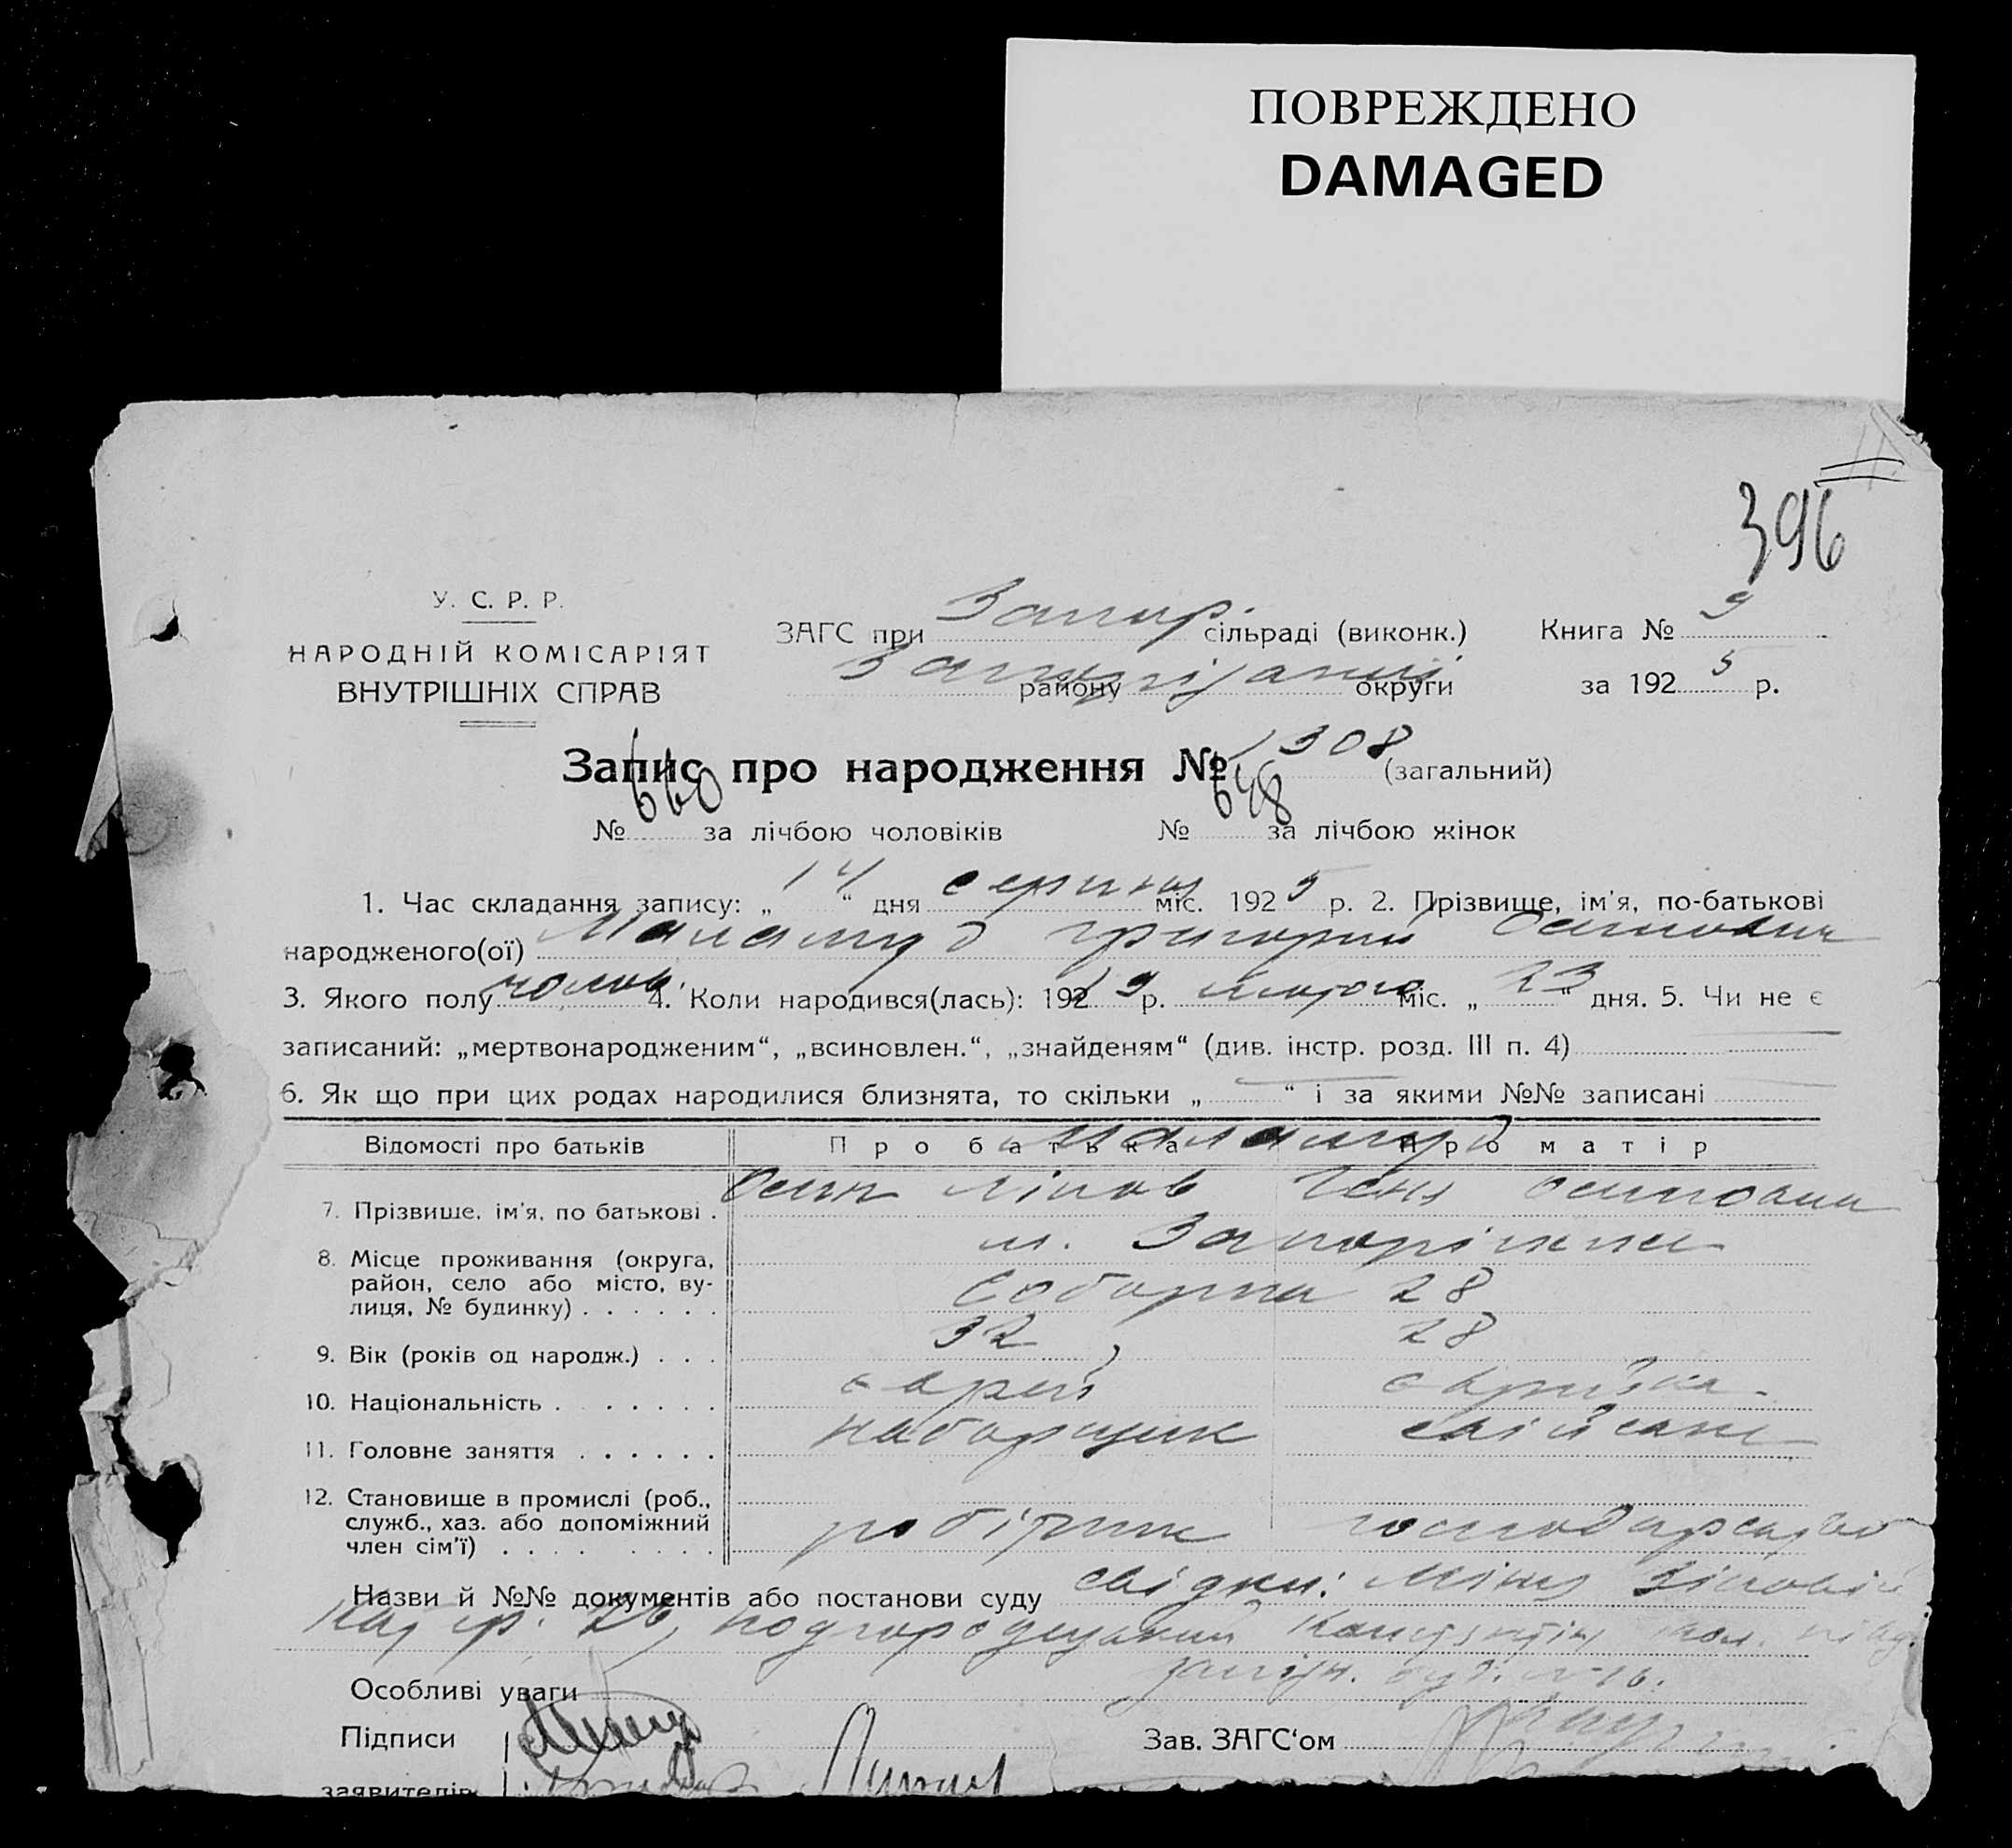 ПОВРЕЖДЕНО
DAMAGED
396
У. С. Р. Р.
НАРОДНІЙ КОМІСАРІЯТ
ВНУТРІШНІХ СПРАВ
ЗАГС при Запор. сільраді (виконк.)
району округи
Книга № 9
за 1925 р.
Запис про народження № 1308 (загальний)
№ 660 за лічбою чоловіків № 648 за лічбою жінок
1. Час складання запису: „14“ дня серпня міс. 1925 р. 2. Прізвище, ім'я, по-батькові
народженого(ої) Маламуд Григорий Осипович
3. Якого полу чолов. 4. Коли народився(лась): 192 р. лютого міс. „23“ дня. 5. Чи не є
записаний: „мертвонародженим“, „всиновлен.“, „знайденям“ (див. інстр. розд. III п. 4)
6. Як що при цих родах народилися близнята, то скільки „ “ і за якими №№ записані
Відомості про батьків Про батька Про матір
Маламуд
7. Прізвище, ім'я, по батькові . Осип Геня Осиповна
8. Місце проживання (округа, район, село або місто, вулиця, № будинку) . . . . . . м. Запоріжжя
Соборна 28
9. Вік (років од народж.) . . . 32 28
10. Національність . . . . . . . еврей еврейка.
11. Головне заняття . . . . . . наборщик хатнє
12. Становище в промислі (роб., служб., хаз. або допоміжний член сім'ї) . . . . . . . . робітник господарство
Назви й №№ документів або постанови суду свідки: Зіновій
26, Подгородецький
буд. № 16.
Особливі уваги
Підписи
заявителів
Зав. ЗАГС'ом